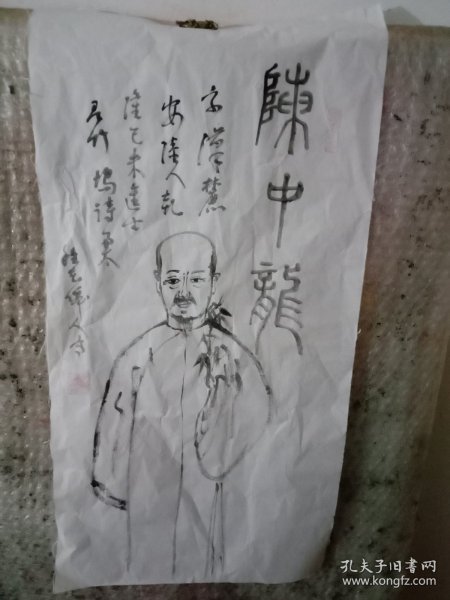 陳中龍
字
安陸人乾
隆己未進士
有竹塢詩集
孔夫子旧书网
www.kongfz.com